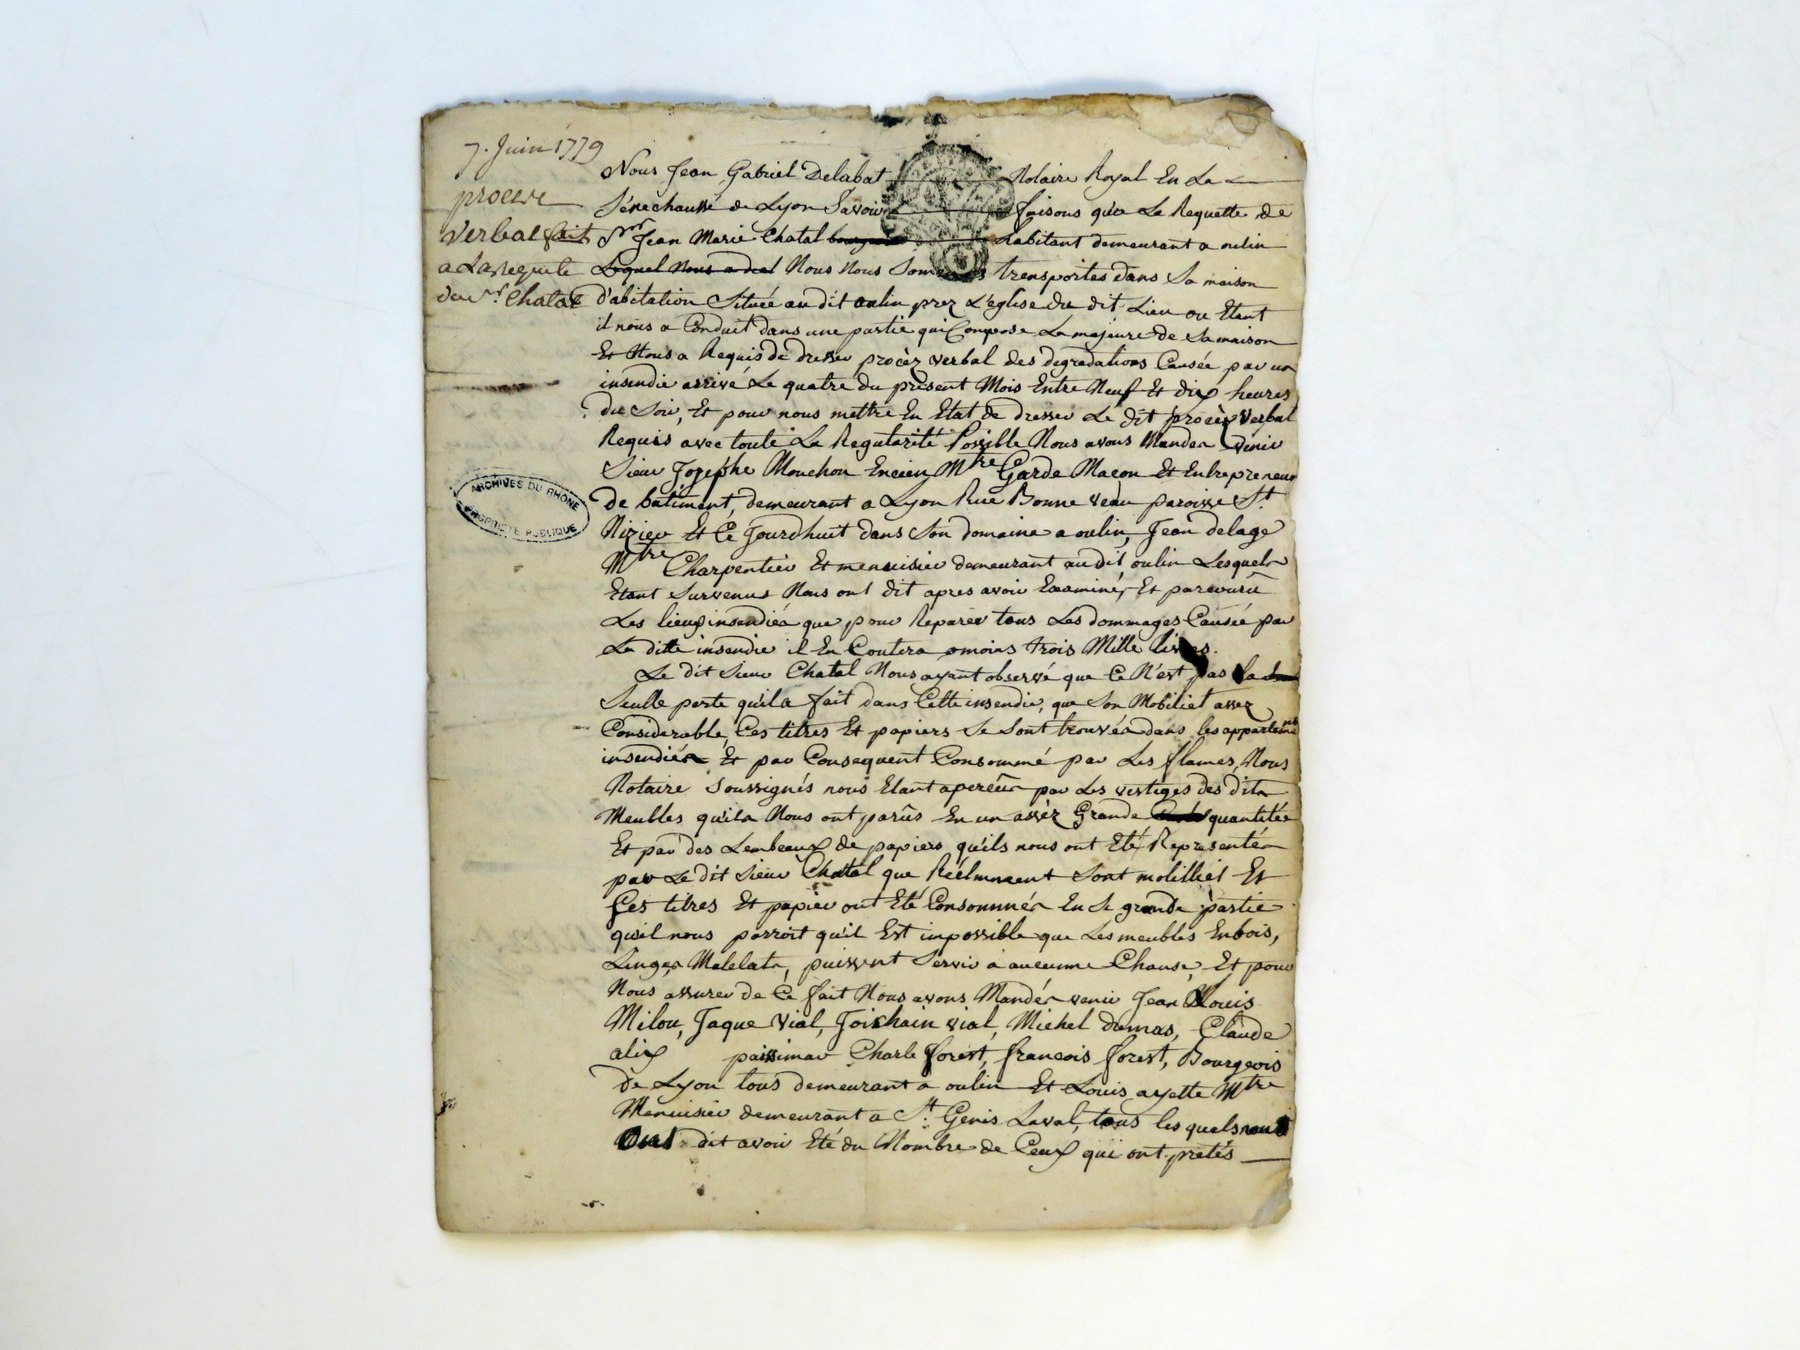 7. Juin 1779
procere
verbal fait
a La Requete
du Sr. Chatal
ARCHIVES DU RHÔNE
PROPRIÉTÉ PUBLIQUE
Nous Jean Gabriel Delabat Notaire Royal En La
Sénechaussé de Lyon Savoir faisons qu'a La Requette de
Sr. Jean Marie Chatal habitant demeurant a oulin
Lequel Nous a Nous Nous Sommes transportes dans Sa maison
d'abitation Située au dit oulin prez L'eglise du dit Lieu ou Etant
il nous a Conduit dans une partie qui Compose La majeure de Sa maison
Et Nous a Requis de dresser procèz verbal des degradations Causée par un
insendie arrivé Le quatre du présent Mois Entre Neuf Et dix heures
du Soir, Et pour nous mettre En Etat de dresser Le dit procèz verbal
Requis avec toute La Regularité Possible Nous avons Mander venir
Sieur Josephe Mouchon Encien Mtre Garde Macon Et Entrepreneur
de batiment, demeurant a Lyon Rue Bonneveau paroisse St.
Nizier Et Ce Jourdhuit dans Son domaine a oulin, Jean delage
Mtre Charpentier Et menuisier demeurant au dit oulin Lesquels
Etant Survenus Nous ont dit apres avoir Examiné, Et parcouru
Les lieux insendiés que pour Reparer tous Les dommages Causée par
La ditte insendie il En Coutera omoins trois Mille livres.
Le dit Sieur Chatal Nous ayant observé que Ce N'est pas La
Seulle perte qu'il a fait dans Cette insendie, que Son Mobiliet assez
Considerable, Ces titres Et papiers Se Sont trouvés dans les appartemts
insendiés Et par Consequent Consommé par Les flames, Nous
Notaire Soussignés nous Etant aperçûs par Les vestiges des dits
Meubles qu'ils Nous ont parûs En un assèz Grande quantitée
Et par des Lembeaux de papiers qu'ils nous ont Eté Representés
par Le dit Sieur Chatal que Réelmnent Sont mobilliet Et
Ses titres Et papier ont Eté Consommés En Si grande partie
qu'il nous parroit qu'il Est impossible que Les meubles En bois,
Linges Matelats, puissent Servir a aucunne Chause, Et pour
Nous assurer de Ce fait Nous avons Mandés venir Jean Louis
Milou, Jaque Vial, Joichain vial, Michel dumas, Claude
alix paissimar Charle forest, francois forest, Bourgeois
de Lyon tous demeurant a oulin Et Louis ayette Mtre
Menuisier demeurant a St. Genis Laval, tous les quels nous
ont dit avoir Eté du Nombre de Ceux qui ont pretés